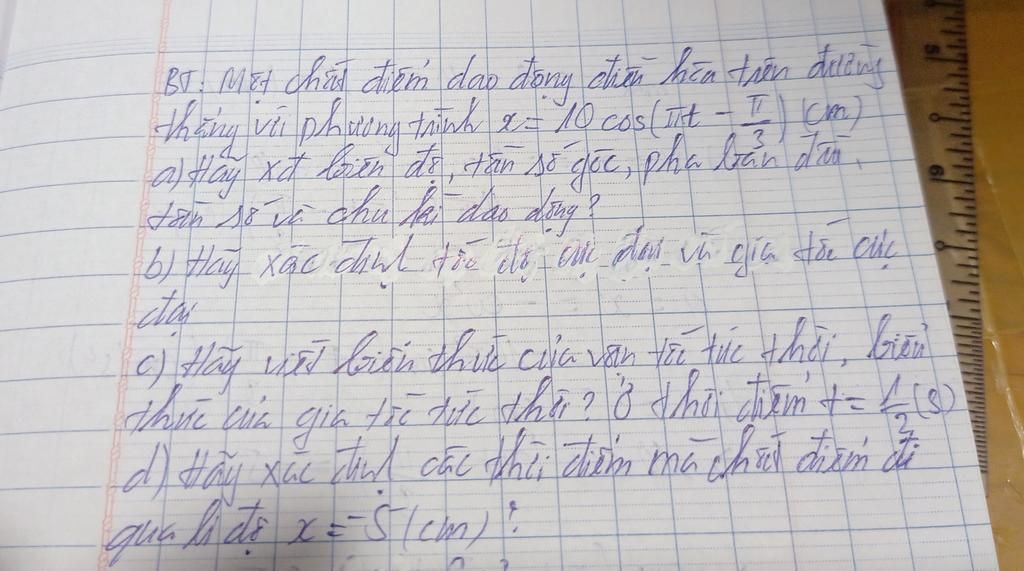 BT: Một chất điểm dao động điều hòa trên đường
thẳng với phương trình x = 10 cos(πt - π/3) (cm)
a) Hãy xđ biên độ, tần số góc, pha ban đầu,
tần số và chu kì dao động?
b) Hãy xác định tốc độ cực đại và gia tốc cực
đại
c) Hãy viết biểu thức của vận tốc tức thời, biểu
thức của gia tốc tức thời? Ở thời điểm t = 1/2 (s)
d) Hãy xác định các thời điểm mà chất điểm đi
qua li độ x = -5 (cm)?